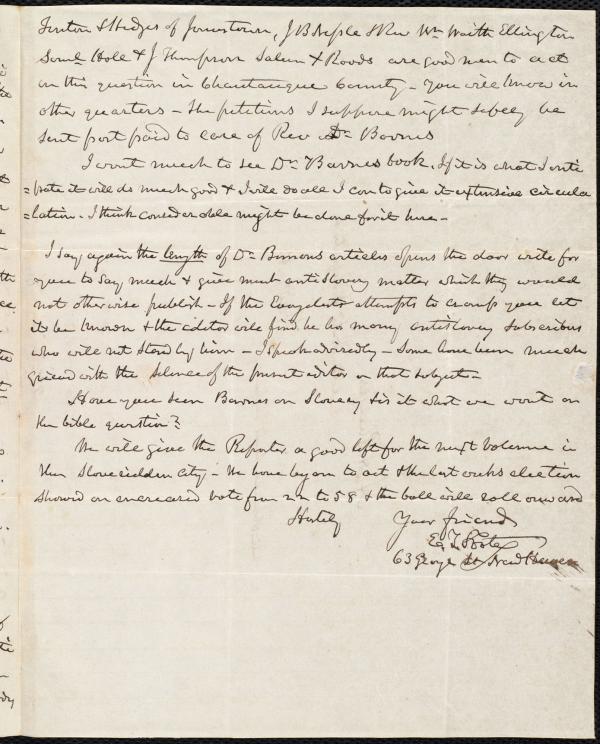 Fenton & Hedges of Jamestown, J B Nessle & Rev Wm Waith Ellington
Saml Hole & J Thompson Salem X Roods are good men to act
on this question in Chautauque County - You will know in
other quarters - The petitions I suppose might safely be
sent post paid to care of Rev Dr Barnes
I want much to see Dr Barnes book. If it is what I anti
=pate it will do much good & I will do all I can to give it extensive circula
=lation - I think considerable might be done for it here -
I say again the length of Dr articles opens the door wide for
you to say much & give much antislavery matter which they would
not otherwise publish - If the Evangelist attempts to cramp you let
it be known & the editor will find he has many antislavery subscribers
who will not stand by him - I speak advisedly - Some have been much
grieved with the silence of the present editor on that subject -
Have you seen Barnes on Slavery & is it what we want on
the bible question?
We will give the Reporter a good lift for the next Volume in
this Slave ridden City - We have begun to act & the last weeks election
showed an encreased vote from 22 to 58 & the ball will roll onward
Hastily Your friend
E. T. Foote
63 George St New Haven